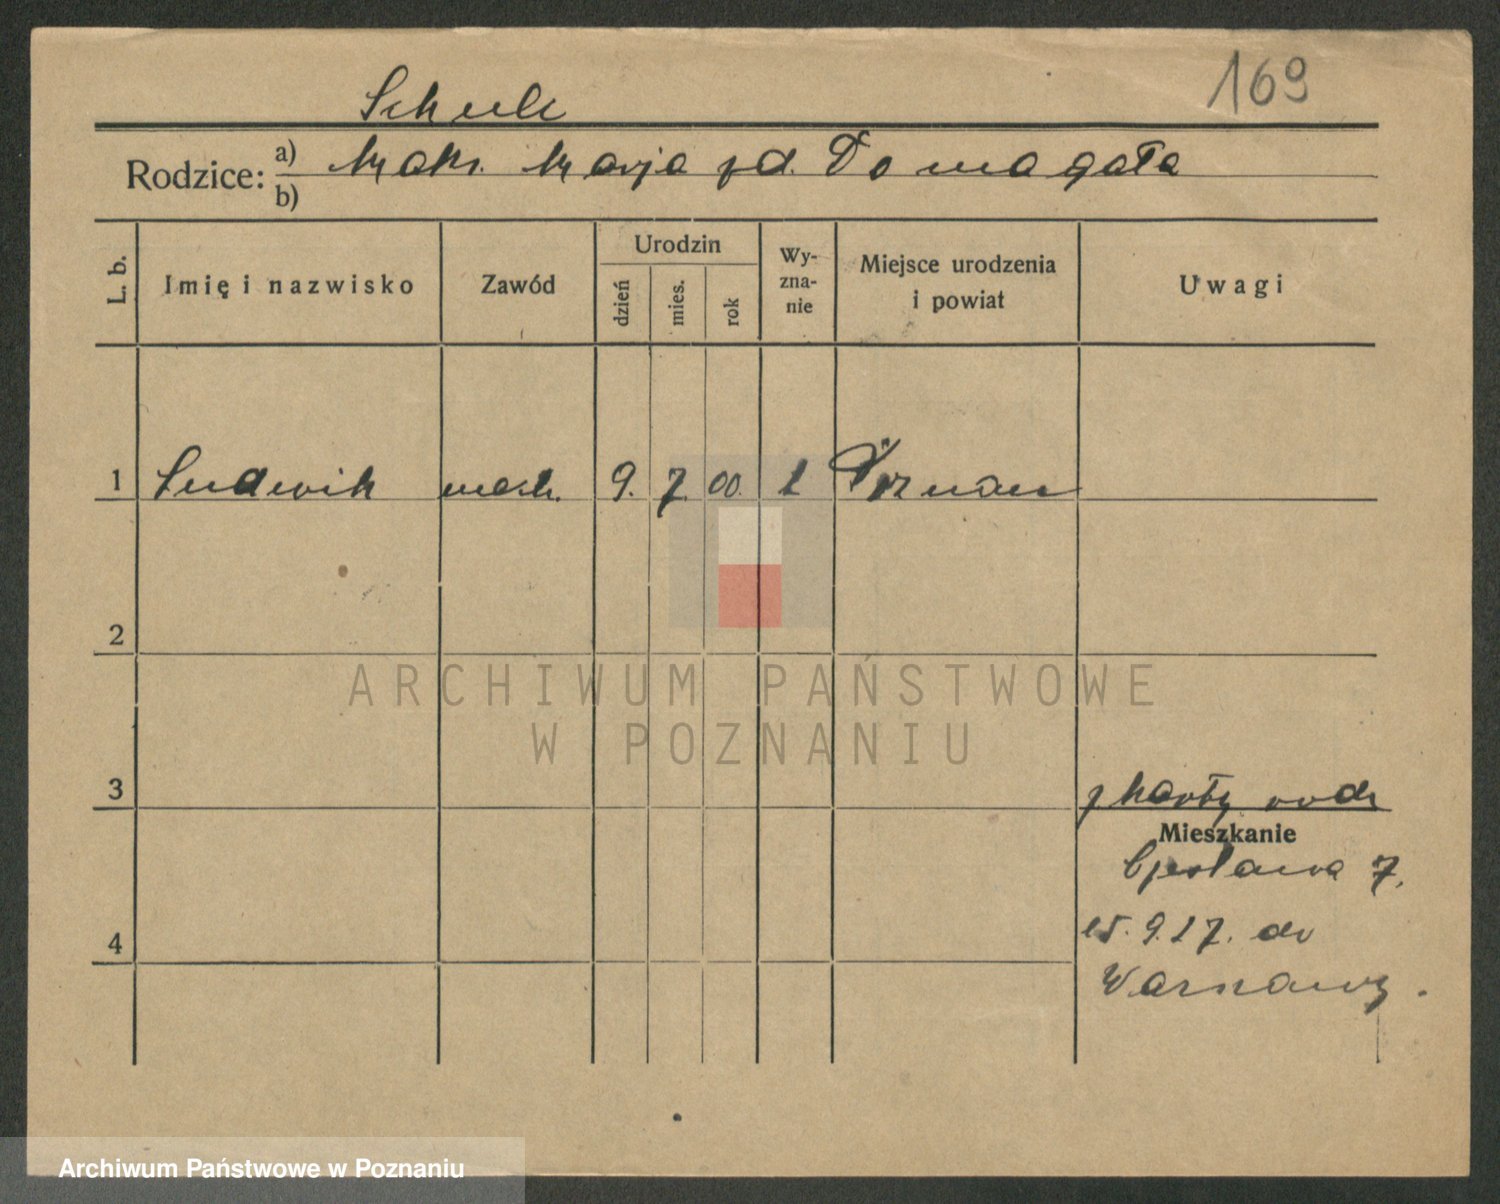 169
Schulc
Rodzice: a) Maks. Marja zd. Domagała
b)
L. b. Imię i nazwisko Zawód Urodzin dzień mies. rok Wy-zna-nie Miejsce urodzenia i powiat Uwagi
1 Ludwik 9. 7. 00. Poznań
2
ARCHIWUM PAŃSTWOWE
W POZNANIU
3 z karty rodz
Mieszkanie
7.
4 9.27. do
Warszawy.
Archiwum Państwowe w Poznaniu